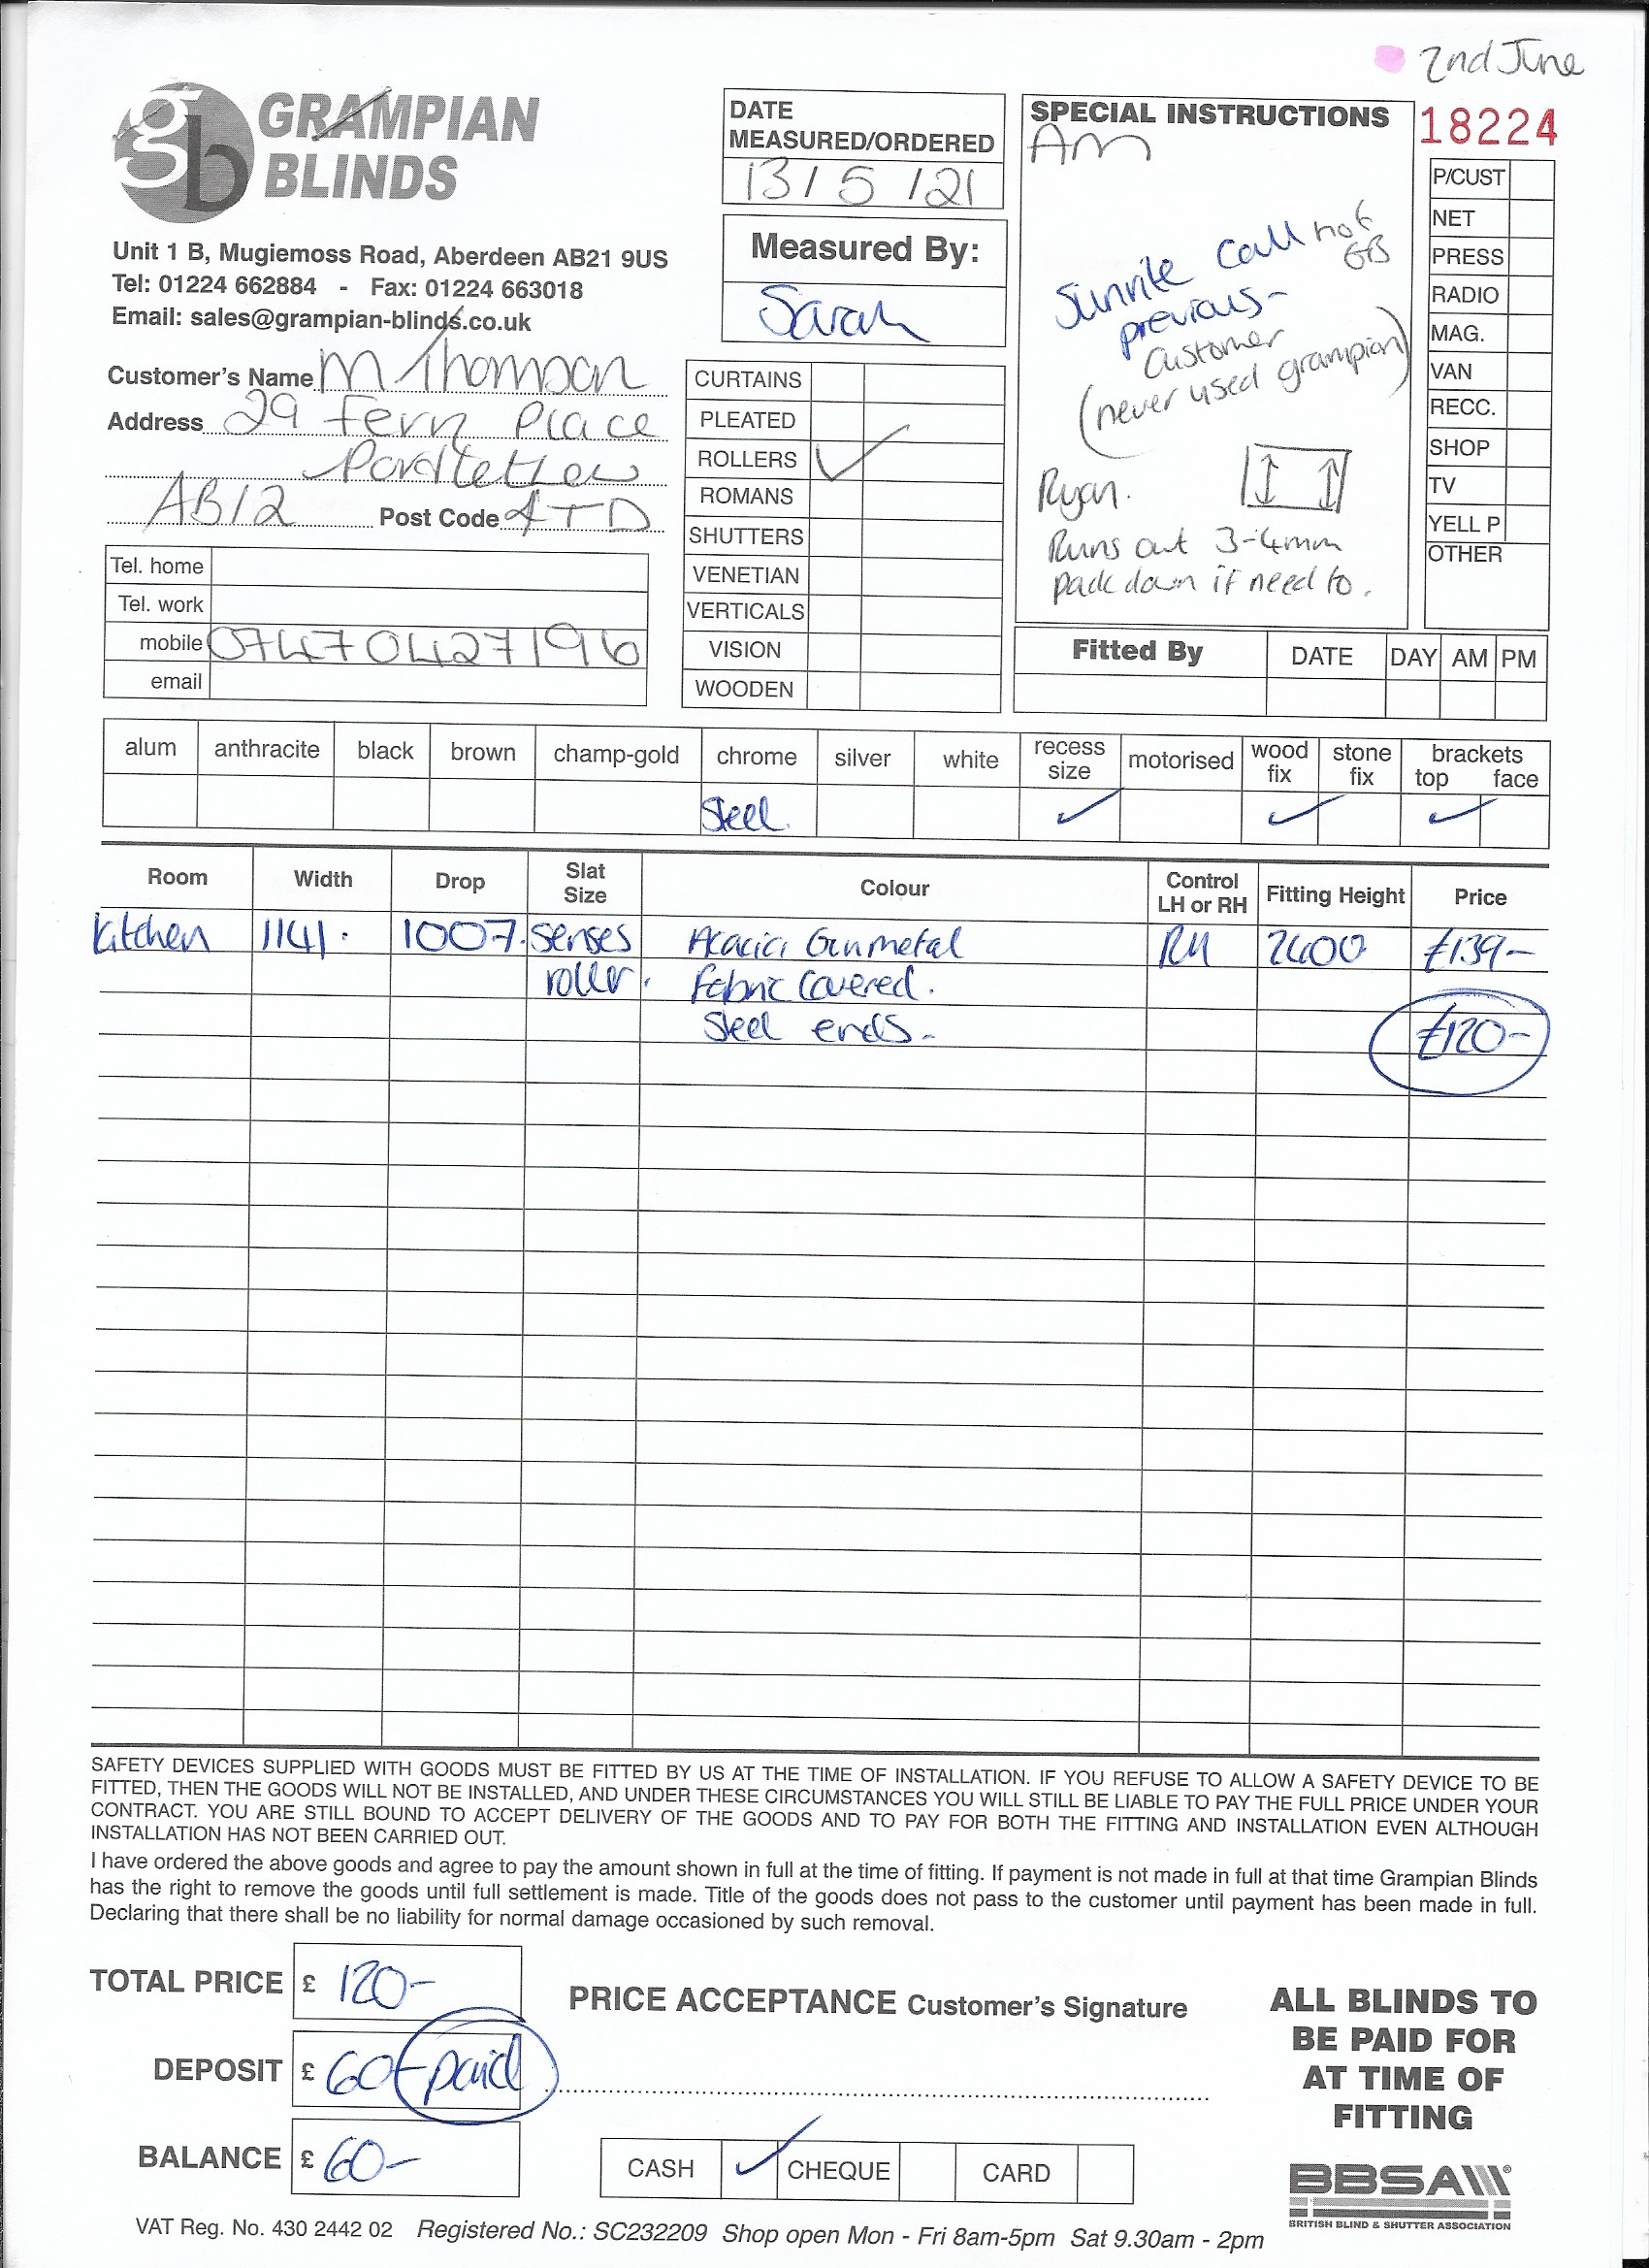 2nd June
GRAMPIAN
BLINDS
gb
Unit 1 B, Mugiemoss Road, Aberdeen AB21 9US
Tel: 01224 662884 - Fax: 01224 663018
Email: sales@grampian-blinds.co.uk
DATE
MEASURED/ORDERED
13/5/21
Measured By:
Sarah
SPECIAL INSTRUCTIONS
AM
Sunrite Call not
GB
previous-
Customer
(never used grampian)
Ryan.
Runs out 3-4mm
pack down if need to.
18224
P/CUST
NET
PRESS
RADIO
MAG.
VAN
RECC.
SHOP
TV
YELL P
OTHER
Customer's Name M Thomson
Address 29 Fern Place
Portlethen
AB12 Post Code 4TD
Tel. home
Tel. work
mobile 07470427196
email
CURTAINS
PLEATED
ROLLERS ✓
ROMANS
SHUTTERS
VENETIAN
VERTICALS
VISION
WOODEN
Fitted By DATE DAY AM PM
alum anthracite black brown champ-gold chrome silver white recess size motorised wood fix stone fix brackets top face
Steel ✓ ✓ ✓
Room Width Drop Slat Size Colour Control LH or RH Fitting Height Price
Kitchen 1141. 1007. senses Acacia Gunmetal RH 2400 £139-
roller. Fabric Covered.
Steel ends- £120-
SAFETY DEVICES SUPPLIED WITH GOODS MUST BE FITTED BY US AT THE TIME OF INSTALLATION. IF YOU REFUSE TO ALLOW A SAFETY DEVICE TO BE
FITTED, THEN THE GOODS WILL NOT BE INSTALLED, AND UNDER THESE CIRCUMSTANCES YOU WILL STILL BE LIABLE TO PAY THE FULL PRICE UNDER YOUR
CONTRACT. YOU ARE STILL BOUND TO ACCEPT DELIVERY OF THE GOODS AND TO PAY FOR BOTH THE FITTING AND INSTALLATION EVEN ALTHOUGH
INSTALLATION HAS NOT BEEN CARRIED OUT.
I have ordered the above goods and agree to pay the amount shown in full at the time of fitting. If payment is not made in full at that time Grampian Blinds
has the right to remove the goods until full settlement is made. Title of the goods does not pass to the customer until payment has been made in full.
Declaring that there shall be no liability for normal damage occasioned by such removal.
TOTAL PRICE £ 120-
DEPOSIT £ 60- paid
BALANCE £ 60-
PRICE ACCEPTANCE Customer's Signature
CASH ✓ CHEQUE CARD
ALL BLINDS TO
BE PAID FOR
AT TIME OF
FITTING
BBSA
BRITISH BLIND & SHUTTER ASSOCIATION
VAT Reg. No. 430 2442 02 Registered No.: SC232209 Shop open Mon - Fri 8am-5pm Sat 9.30am - 2pm